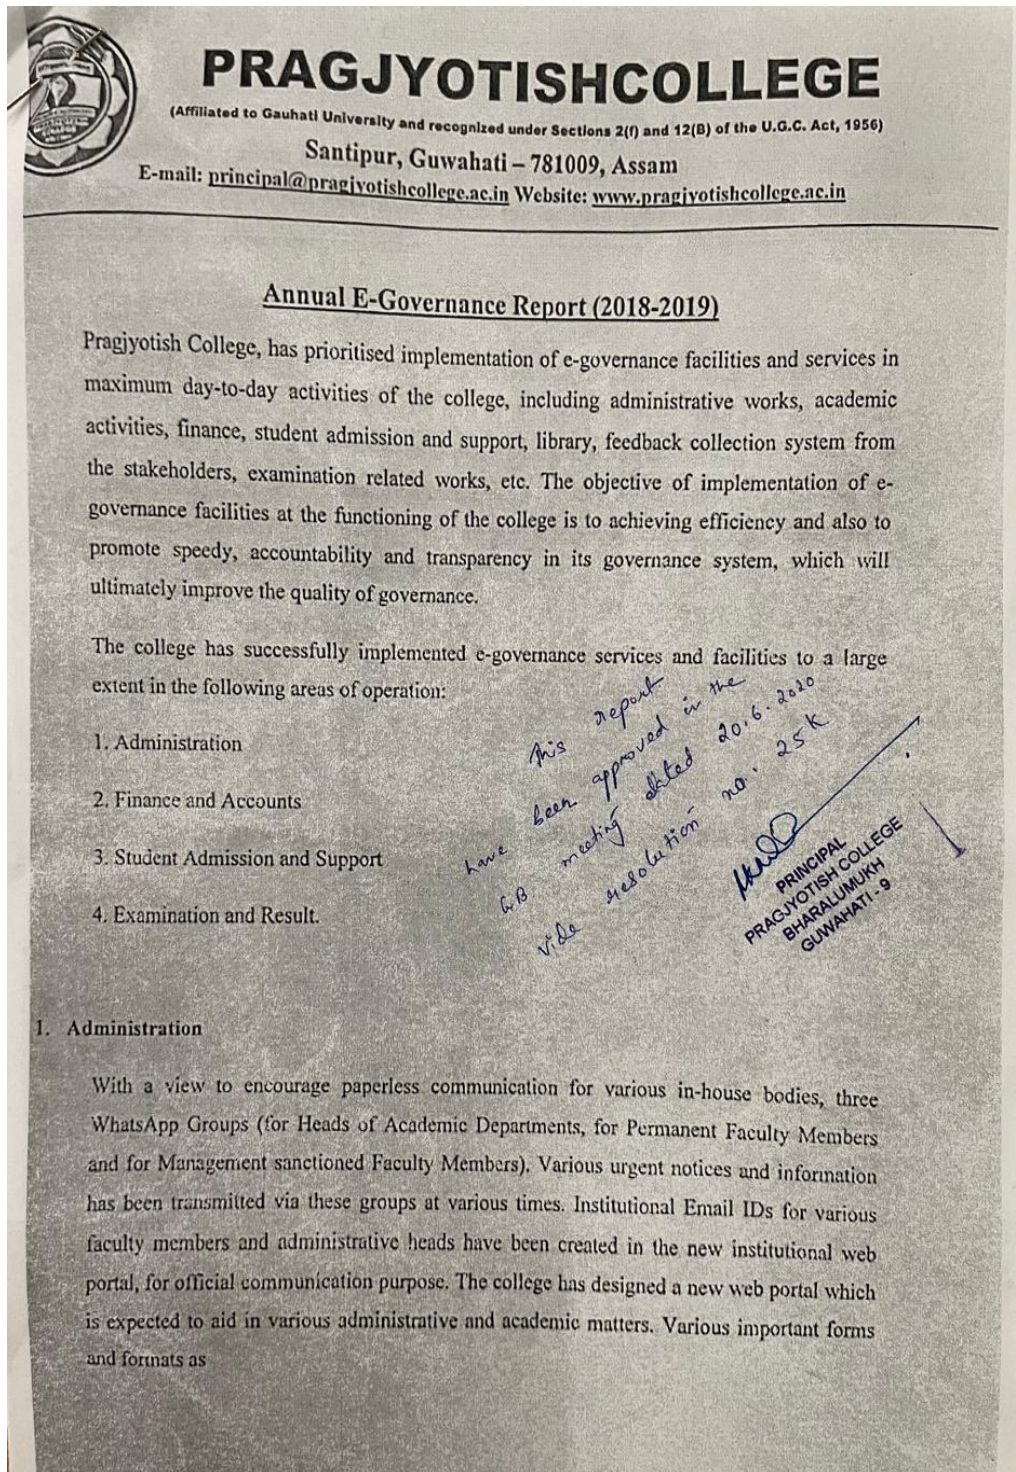 PRAGJYOTISHCOLLEGE
(Affiliated to Gauhati University and recognized under Sections 2(f) and 12(B) of the U.G.C. Act, 1956)
Santipur, Guwahati – 781009, Assam
E-mail: principal@pragjyotishcollege.ac.in Website: www.pragjyotishcollege.ac.in
Annual E-Governance Report (2018-2019)
Pragjyotish College, has prioritised implementation of e-governance facilities and services in
maximum day-to-day activities of the college, including administrative works, academic
activities, finance, student admission and support, library, feedback collection system from
the stakeholders, examination related works, etc. The objective of implementation of e-
governance facilities at the functioning of the college is to achieving efficiency and also to
promote speedy, accountability and transparency in its governance system, which will
ultimately improve the quality of governance.
The college has successfully implemented e-governance services and facilities to a large
extent in the following areas of operation:
1. Administration
2. Finance and Accounts
3. Student Admission and Support
4. Examination and Result.
This report
have been approved in the
GB meeting dated 20.6.2020
vide resolution no. 25K
PRINCIPAL
PRAGJYOTISH COLLEGE
BHARALUMUKH
GUWAHATI - 9
1. Administration
With a view to encourage paperless communication for various in-house bodies, three
WhatsApp Groups (for Heads of Academic Departments, for Permanent Faculty Members
and for Management sanctioned Faculty Members). Various urgent notices and information
has been transmitted via these groups at various times. Institutional Email IDs for various
faculty members and administrative heads have been created in the new institutional web
portal, for official communication purpose. The college has designed a new web portal which
is expected to aid in various administrative and academic matters. Various important forms
and formats as